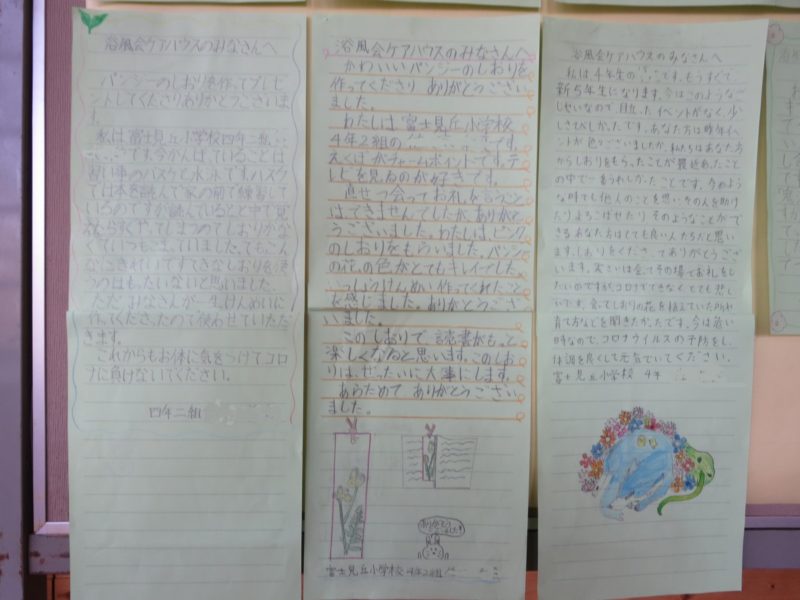 浴風会ケアハウスのみなさんへ
パンジーのしおりを作ってプレゼ
ントしてくださりありがとうございま
す。
私は富士見丘小学校四年二組
です。今がんばっていることは
習い事のバスケと水泳です。バスケ
では本を読んで家の前で練習して
いるのですが読んでいると中で見
なくていつもこまっていました。でもこん
なにきれいですてきなしおりを使
うのはもったいないと思いました。
ただみなさんが一生けんめいに
作ってくださったので使わせていただ
きます。
これからもお体に気をつけてコロ
ナに負けないでください。
四年二組
浴風会ケアハウスのみなさんへ
かわいいパンジーのしおりを
作ってくださり ありがとうござい
ました。
わたしは富士見丘小学校
4年2組の です。
えくぼがチャームポイントです。テ
レビを見るのが好きです。
直せつ会ってお礼を言うこと
はできませんでしたが、ありがと
うございました。わたしは、ピンク
のしおりをもらいました。パンジー
の花の色がとてもキレイでした。
いっしょうけんめい作ってくれたこと
を感じました。ありがとうござ
いました。
このしおりで、読書がもっと
楽しくなると思います。このしお
りは、ぜったいに大事にします。
あらためて ありがとうござい
ました。
ありがとうございました!
富士見丘小学校 4年2組
浴風会ケアハウスのみなさんへ
私は4年生の です。もうすぐで
新5年生になります。今はこのようなご
じせいなので、目立ったイベントがなく、少
しさびしかったです。あなた方は昨年イベ
ントが色々ございましたか。私たちはあなた方
からしおりをもらったことが最近あったこと
の中で一番うれしかったことです。今のよう
な時でも他人のことを思い今の人を助け
たりよろこばせたりそのようなことがで
きるあなた方はとても良い人たちだと思い
ます。しおりをくださってありがとうござ
います。実さいは会ってその場でお礼をし
たいのですがコロナでできなくてとても悲し
いです。会ってしおりの花を植えていた所や
育て方などを聞きたかったです。今は危い
時なので、コロナウイルスの予防をし、
体調を良くして元気でいてください。
富士見丘小学校 4年